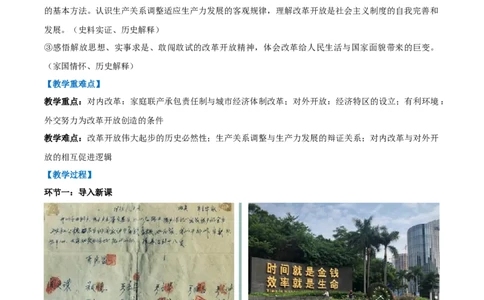 的基本方法。认识生产关系调整适应生产力发展的客观规律，理解改革开放是社会主义制度的自我完善和
发展。（史料实证、历史解释）
③感悟解放思想、实事求是、敢闯敢试的改革开放精神，体会改革给人民生活与国家面貌带来的巨变。
（家国情怀、历史解释）
【教学重难点】
教学重点：对内改革：家庭联产承包责任制与城市经济体制改革；对外开放：经济特区的设立；有利环境：
外交努力为改革开放创造的条件
教学难点：改革开放伟大起步的历史必然性；生产关系调整与生产力发展的辩证关系；对内改革与对外开
放的相互促进逻辑
【教学过程】
环节一：导入新课
时间就是金钱
效率就是生命